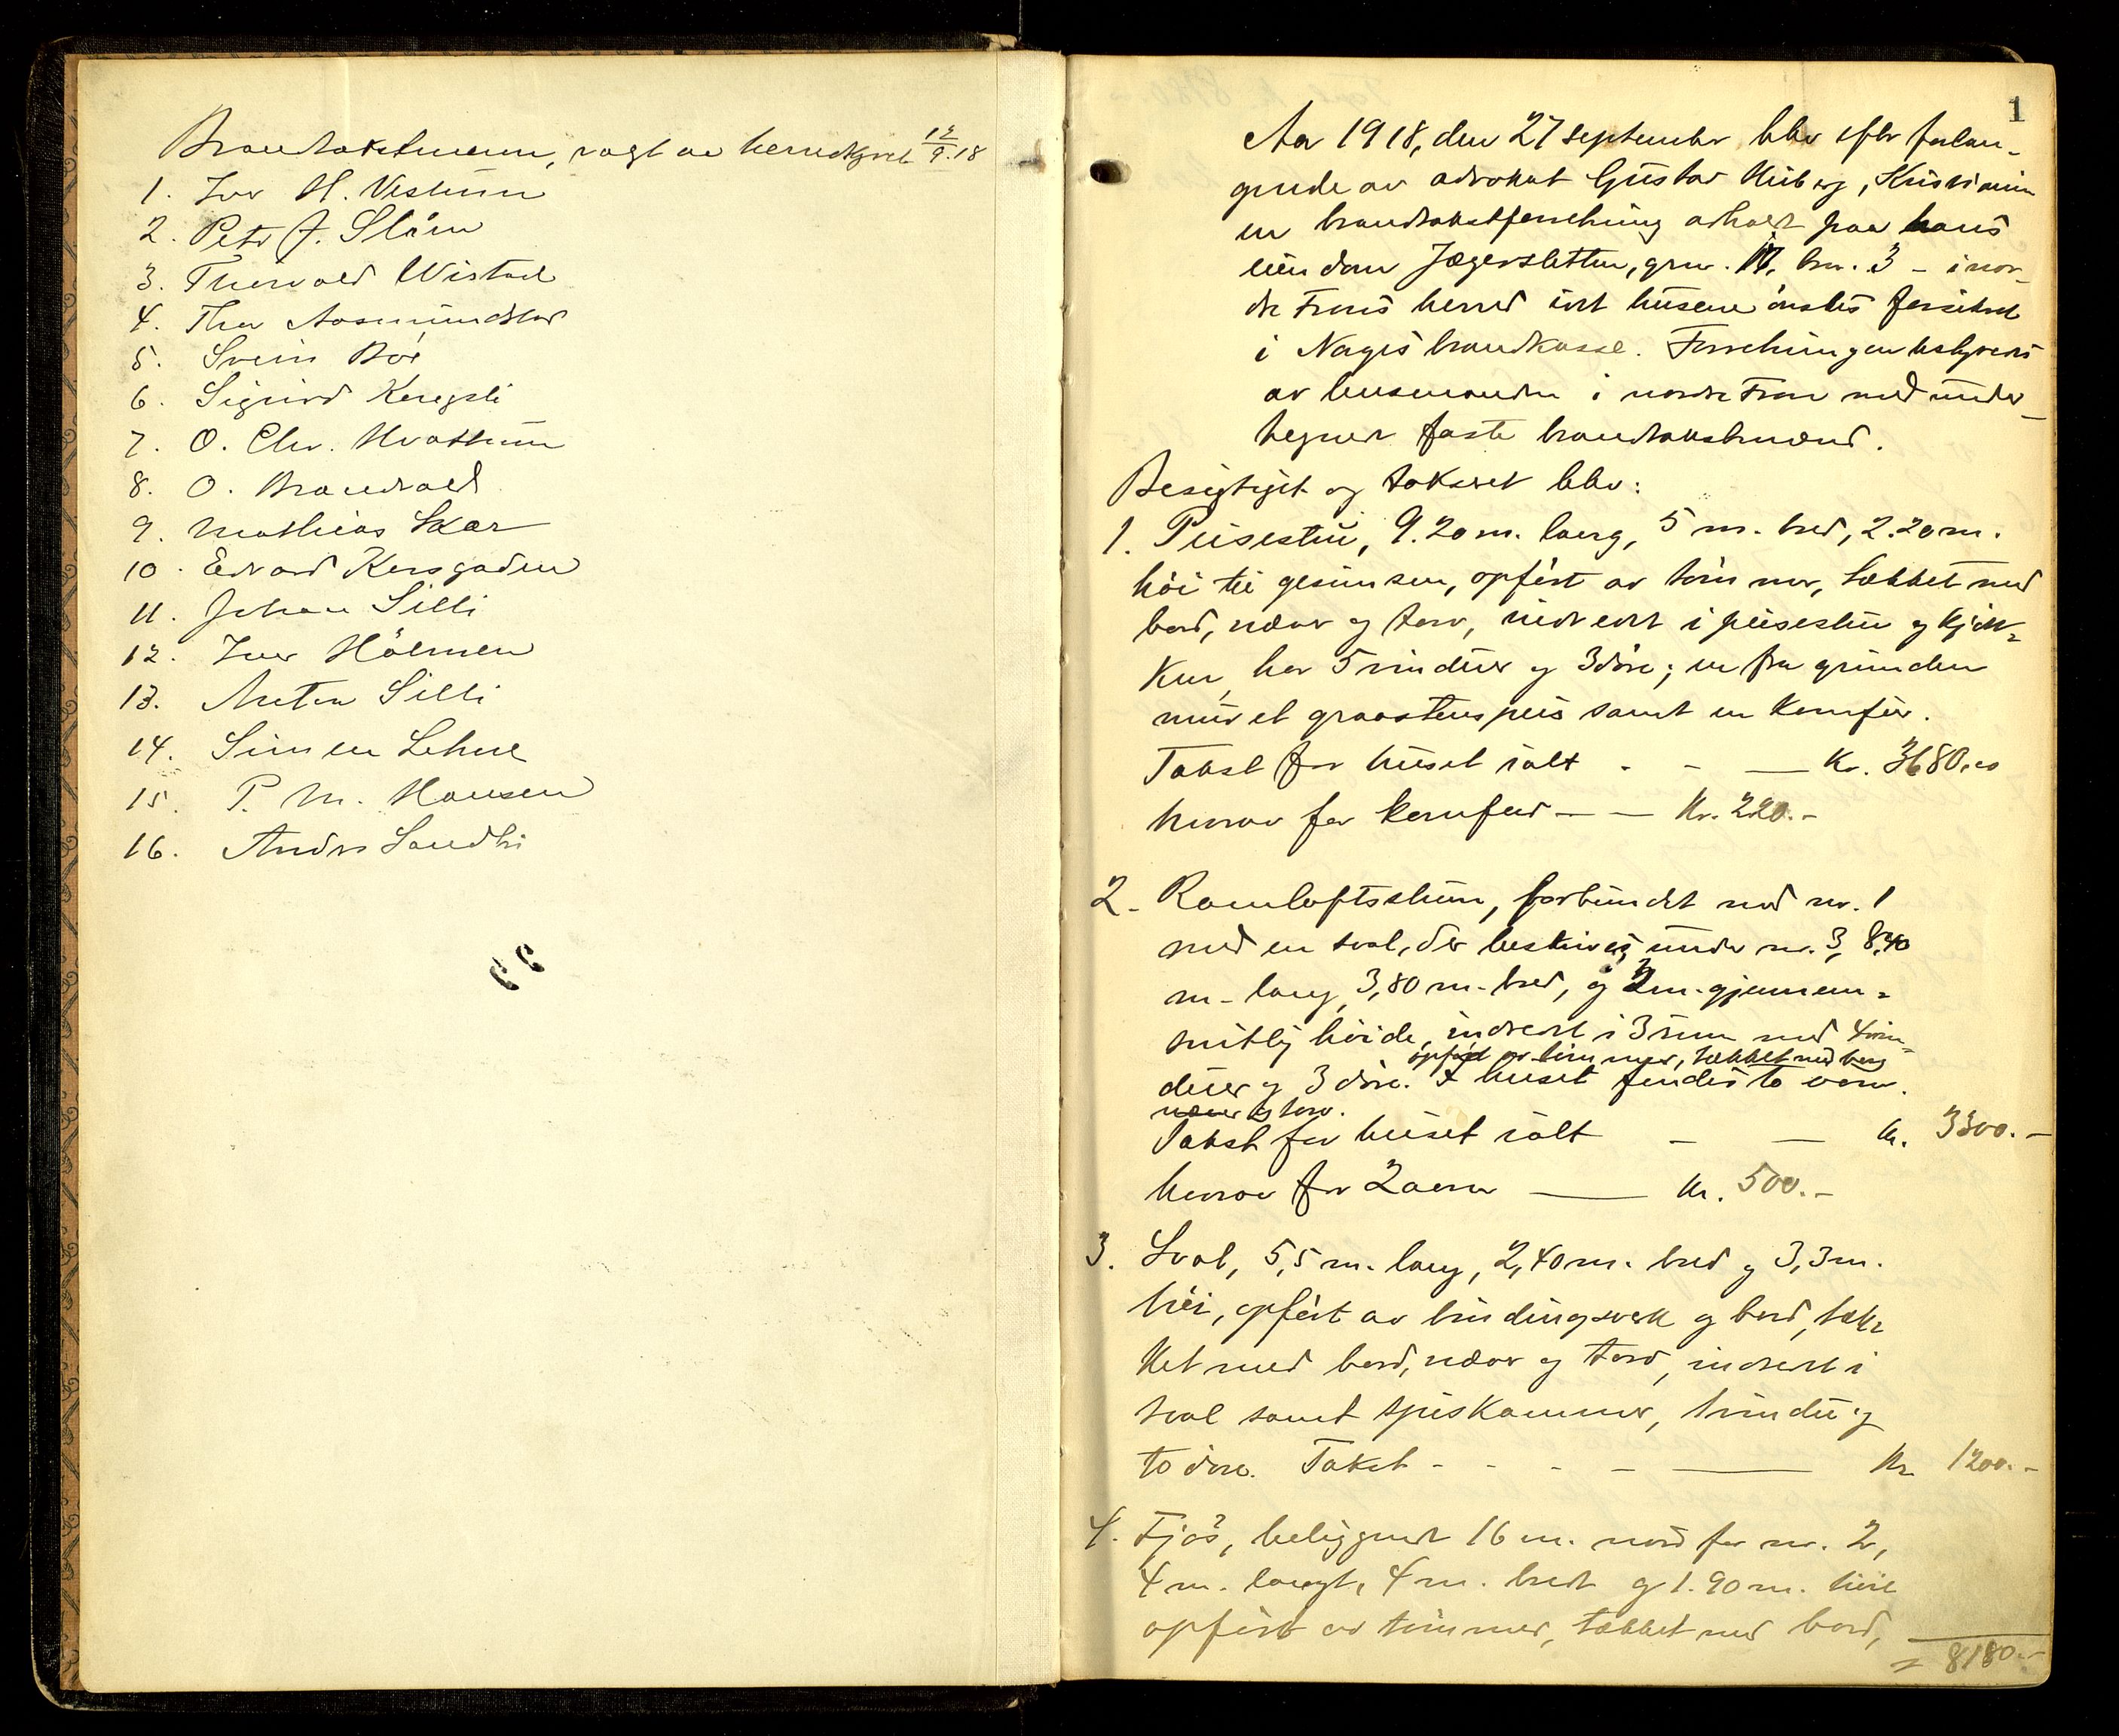 Brandtakstmenn, valgt av herredstyret 12/9.18
1. Iver H. Vestum
2. Peter J. Slåen
3. Thorvald Wistad
4. Thor Aasmundstad
5. Svein Bøe
6. Sigurd
7. O. Chr. Hvattum
8. O. Brandvold
9. Mathias Skar
10. Edvard
11. Johan Silli
12. Iver Hølmen
13. Anton Silli
14. Simen Lehne
15. P. M. Hansen
16. Andrs Sandli
1
Aar 1918, den 27 september blev efter forlan-
gende av advokat Gustav Heiberg, Kristiania
en brandtakstforretning avholdt paa hans
eiendom Jægersletten, grn. 17, brn. 3 - i nor-
dre Frons herred idet husene ønskes forsikret
i Norges brandkasse. Forretningen bestyres
av lensmanden i nordre Fron med under-
tegnede faste brandtakstmænd.
Besigtiget og takseret blev:
1. Peisestue, 9.20 m. lang, 5 m. bred, 2.20 m.
høi til gesimsen, opført av tømmer, tækket med
bord, næver og torv, indredet i peisestue og kjøk-
ken, har 5 vinduer og 3 døre; en fra grunden
muret graastenspeis samt en komfur.
Takst for huset ialt - - — Kr. 3680,00
herav for komfur — — Kr. 220.-
2. Ramloftsstuen, forbundet med nr. 1
med en sval, der beskrives under nr. 3, 8,40
m. lang, 3,80 m. bred, og 3 m. gjennem-
snitlig høide, indredet i 3 rum med 4 vin-
opført av tømmer, tækket med bord
duer og 3 døre. I huset findes to ovne.
næver og torv.
Takst for huset ialt — — Kr. 3300.-
herav for 2 ovner — Kr. 500.-
3. Sval, 5,5 m. lang, 2,40 m. bred og 3,3 m.
høi, opført av bindingsverk og bord, tæk-
ket med bord, næver og torv, indredet i
sval samt spiskammer, 1 vindu og
to døre. Takst - - - - — Kr. 1200.-
4. Fjøs, beliggende 16 m. nord for nr. 2,
4 m. langt, 4 m. bredt og 1.90 m. høit
opført av tømmer, tækket med bord,
= 8180.-